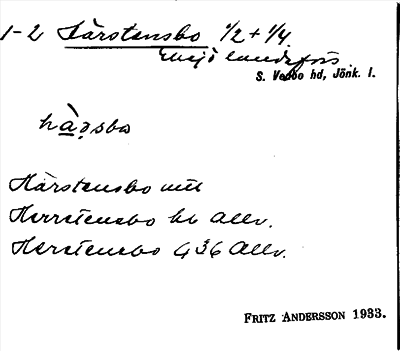 1-2 Härstensbo 1/2 + 1/4.
Eksjö landsförs.
S. Vedbo hd, Jönk. l.
hàṣsbo
Härstensbo mtl
Herrstensbo hb allv.
Herstensbo G 36 allv.
FRITZ ANDERSSON 1933.